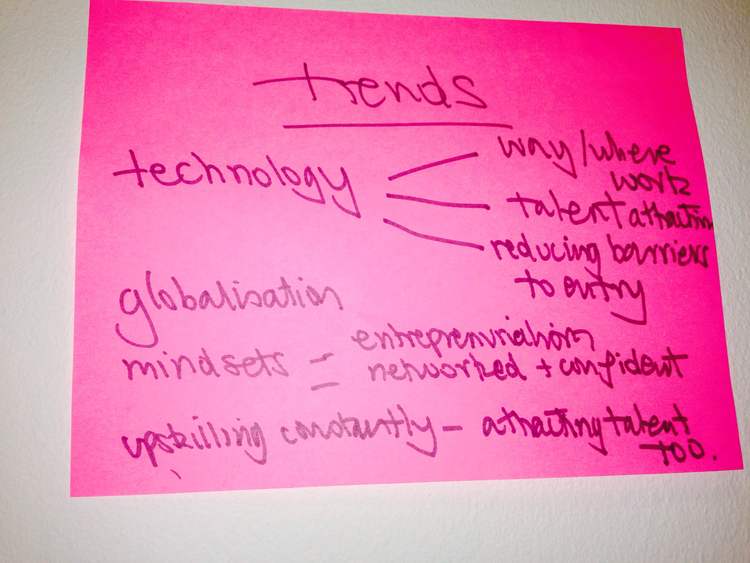 trends
technology
way/where
work
talent attraction
reducing barriers
to entry
globalisation
mindsets = entreprenurialism
networked + confident
upskilling constantly - attracting talent
too.